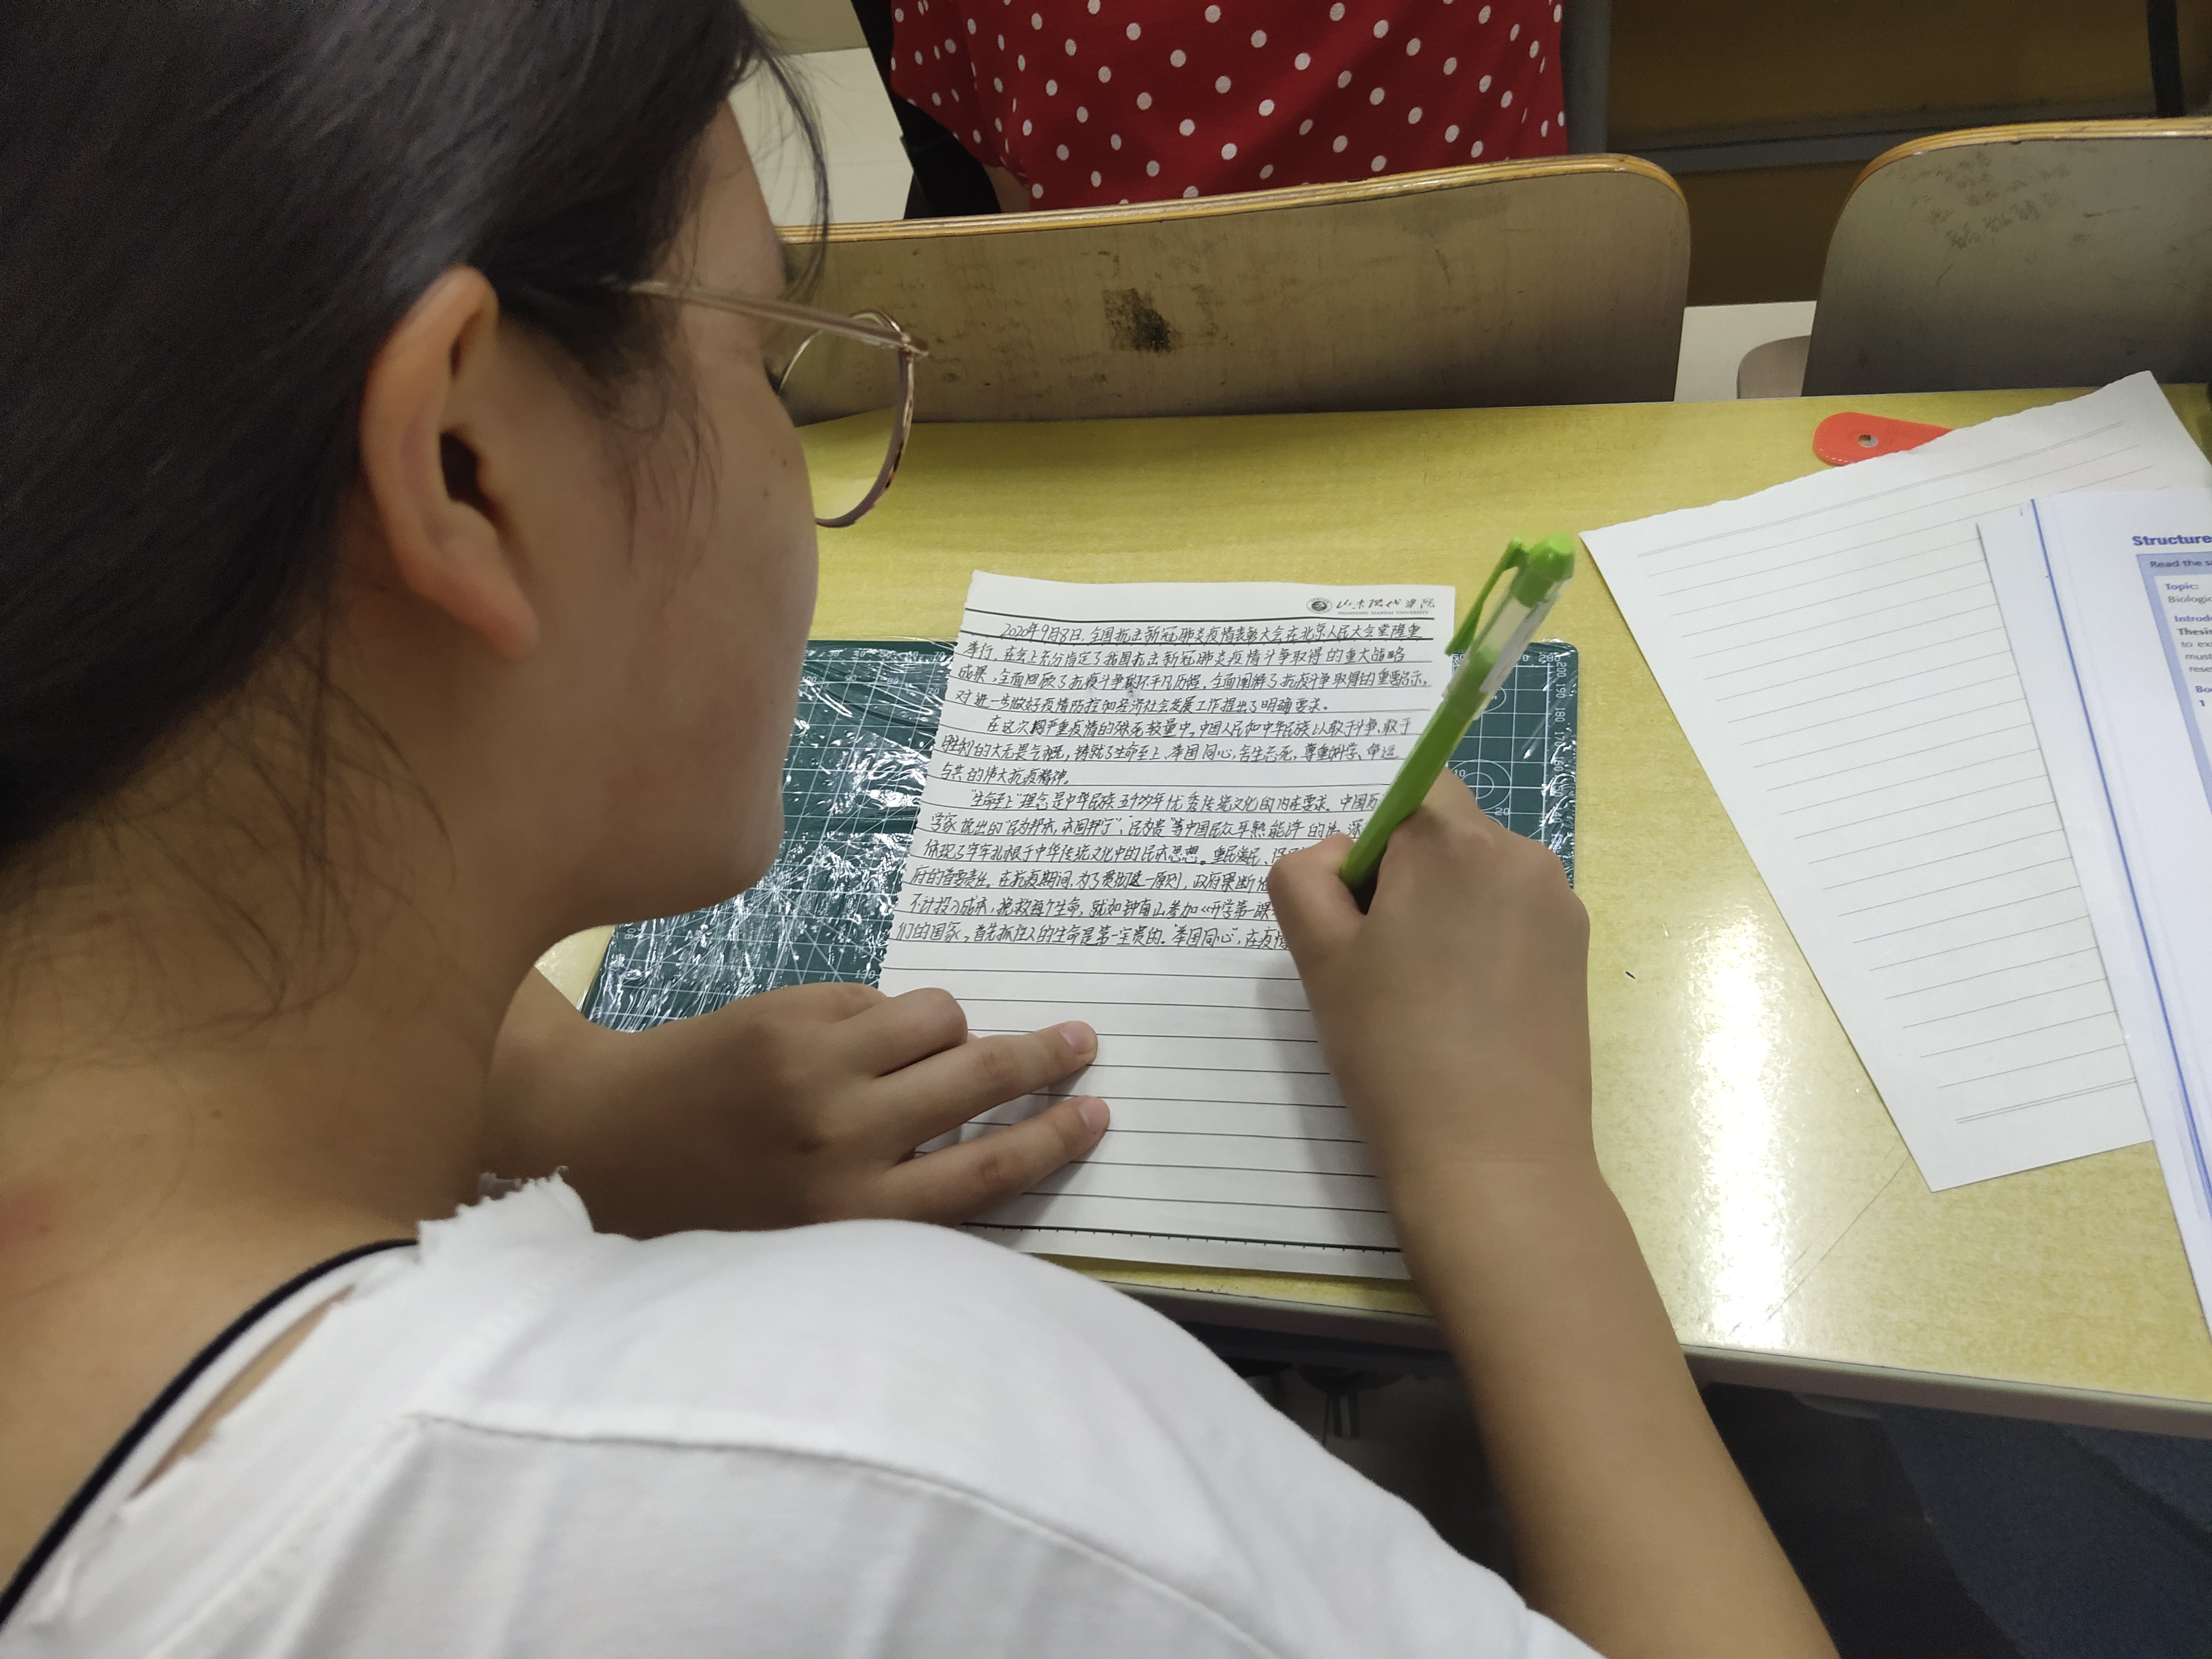 山东现代学院
SHANDONG XIANDAI UNIVERSITY
2020年9月8日,全国抗击新冠肺炎疫情表彰大会在北京人民大会堂隆重
举行,在会上充分肯定了我国抗击新冠肺炎疫情斗争取得的重大战略
成果,全面回顾了抗疫斗争不平凡历程,全面阐释了抗疫斗争取得的重要启示,
对进一步做好疫情防控和经济社会发展工作提出了明确要求。
在这次同严重疫情的殊死较量中,中国人民和中华民族以敢于斗争、敢于
胜利的大无畏气概,铸就了生命至上、举国同心、舍生忘死、尊重科学、命运
与共的伟大抗疫精神。
"生命至上"理念是中华民族五千年优秀传统文化的内在要求、中国历
学家提出的"民为邦本,本固邦宁"、"民为贵"等中国民众耳熟能详的
体现了牢牢扎根于中华传统文化中的民本思想。重民爱民、
府的首要责任。在抗疫期间,为了贯彻这一原则,政府果断
不计投入成本,挽救每个生命,就如钟南山参加《开学第一课
们的国家,首先抓住人的生命是第一宝贵的。"举国同心",在疫情
Structure
Read the s
Topic:
Biologic
Introdu
Thesis
to ex
must
rese
Bo
1